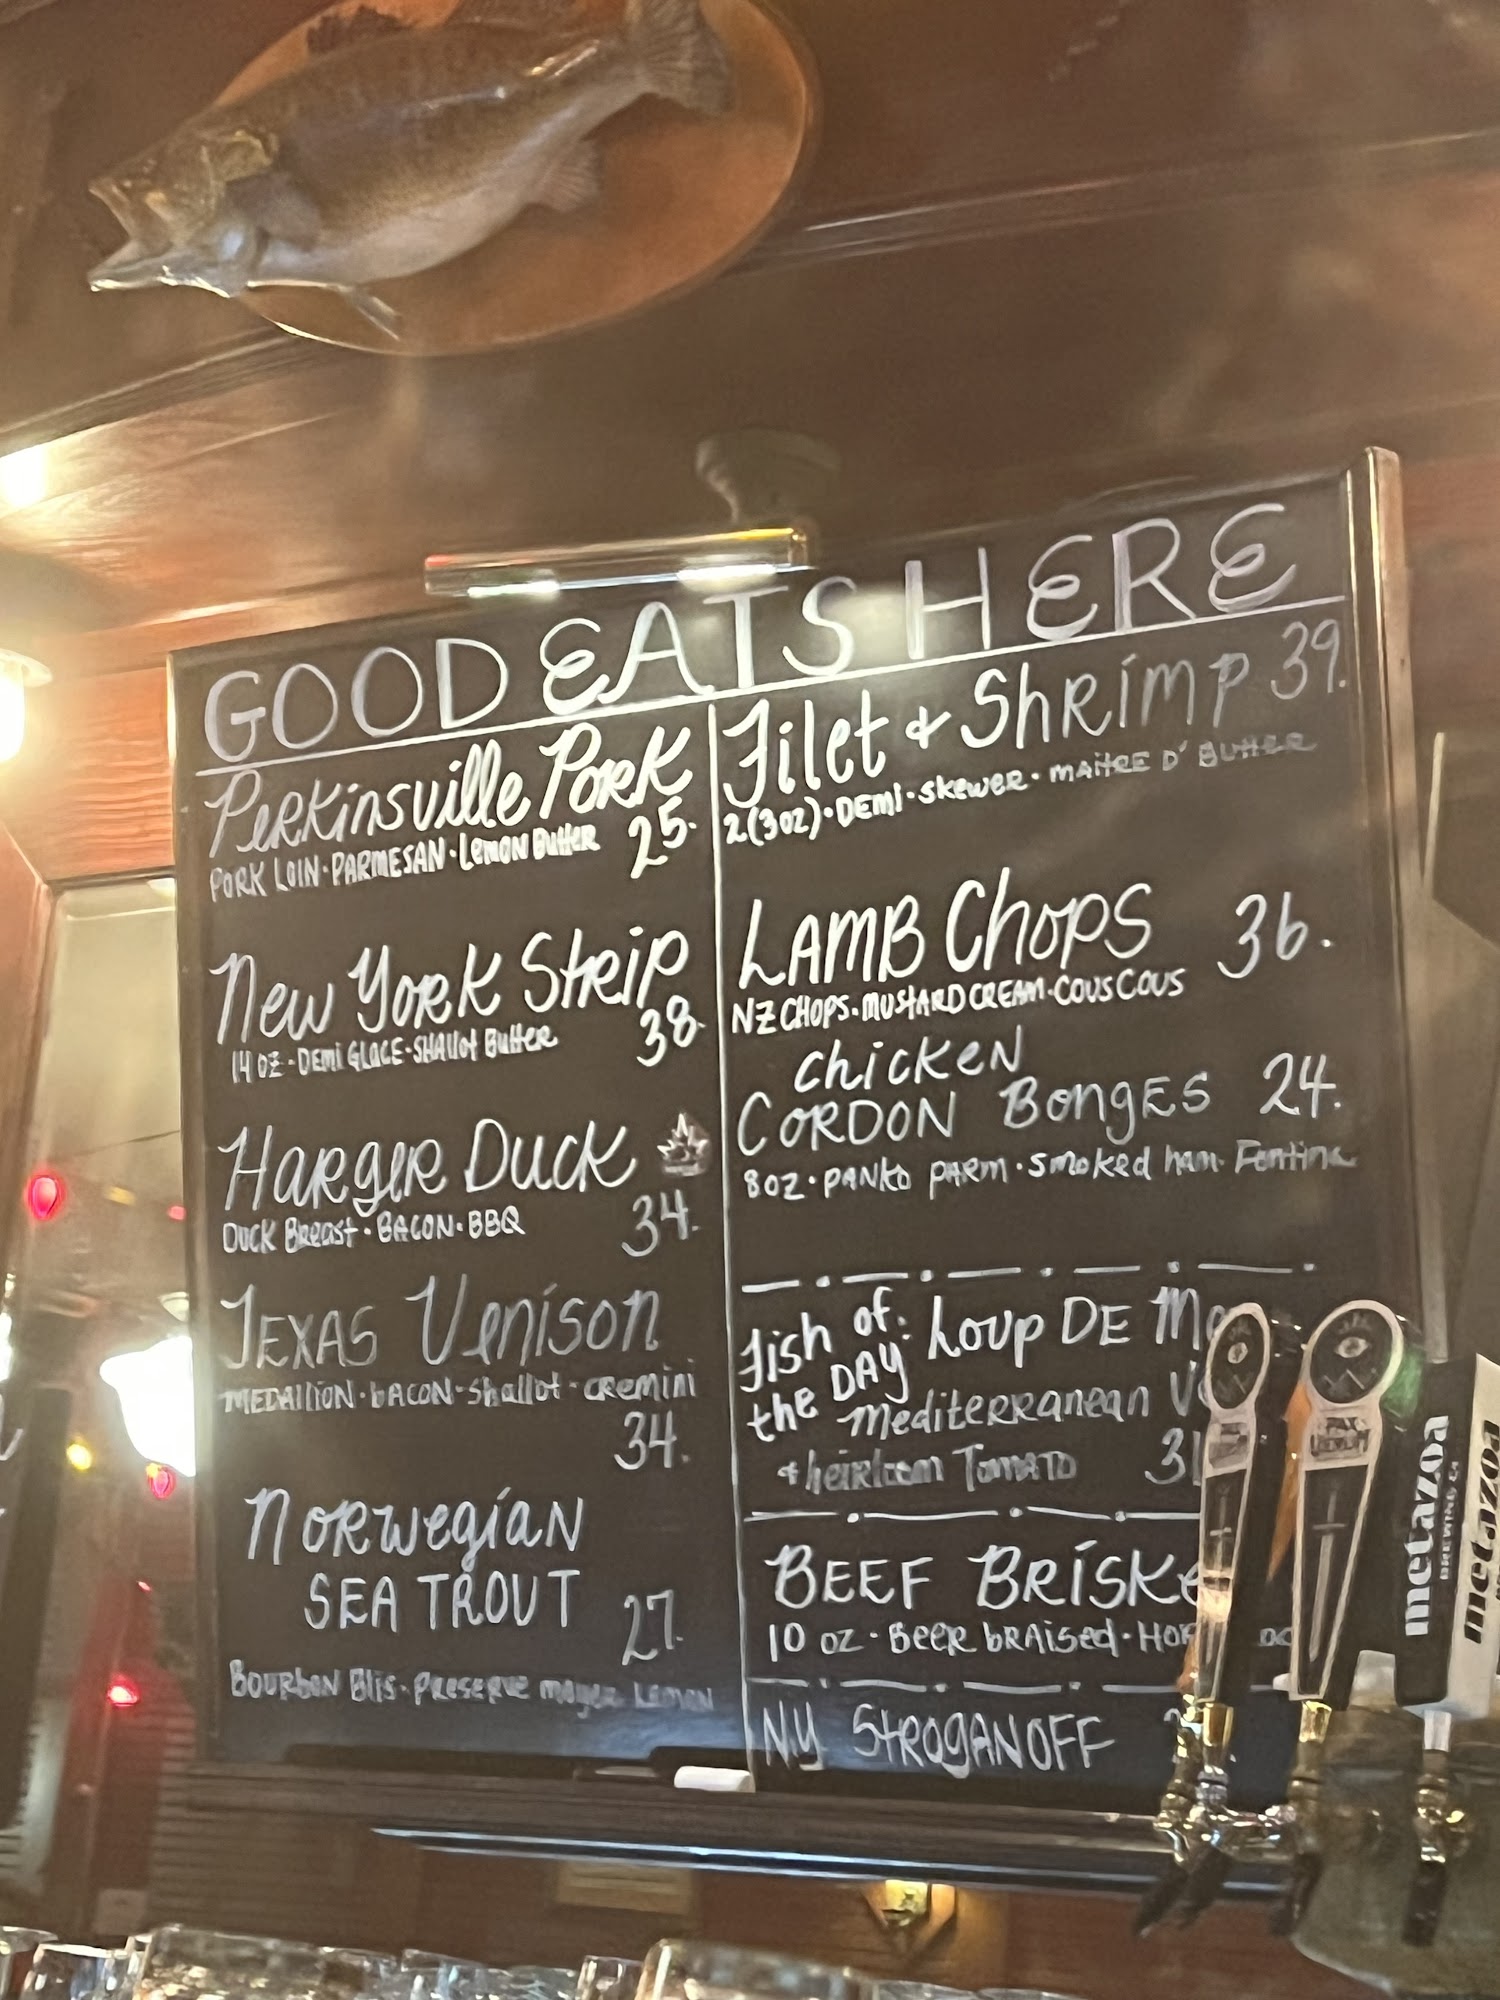 GOOD EATS HERE
Perkinsville Pork
25.
PORK LOIN · PARMESAN · Lemon Butter
New York Strip
38.
14 oz · Demi Glace · Shallot Butter
Harger Duck
34.
Duck Breast · BACON · BBQ
TEXAS Venison
MEDALLION · bACON · Shallot · cremini
34.
Norwegian
SEA TROUT
27.
Bourbon Blis · Preserve Lemon
Filet + Shrimp 39.
2 (3oz) · DEMI · Skewer · MAITRE D' BUTTER
LAMB Chops 36.
NZ CHOPS · MUSTARD CREAM · COUS COUS
Chicken
CORDON BongES 24.
8oz · PANKO PARM · Smoked ham · Fontina
Fish of
the DAY: Loup DE
Mediterranean
+ heirloom TOMATO
BEEF
10 oz · Beer braised
NY STROGANOFF
metazoa
BREWING Co
metazoa